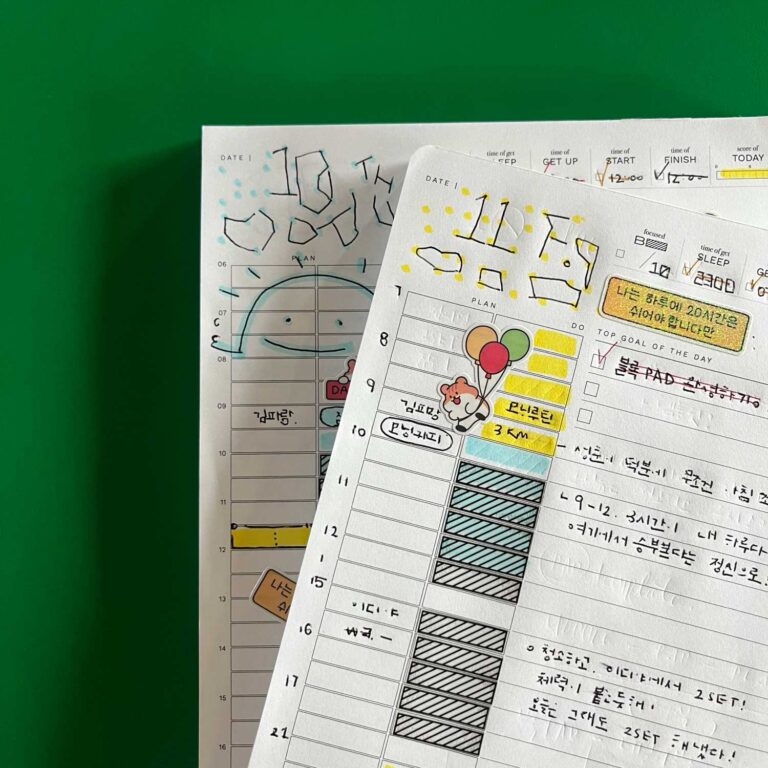 DATE |
10 TH
time of get
SLEEP
time of
GET UP
time of
START
12:00
time of
FINISH
12:00
score of
TODAY
PLAN
06
07
08
09
김파람
10
11
12
13
14
15
16
나는
DATE |
11
focused
10
time of get
SLEEP
2300
나는 하루에 20시간은
쉬어야 합니다만
PLAN
DO
TOP GOAL OF THE DAY
블록 PAD 완성하기
7
8
9
모닝루틴
3KM
모닝커피
10
11
12
1
15
이디야
16
17
21
덕분에 무조건 아침
9-12. 3시간이 내 하루다
여기에서 승부본다는 정신으로!
청소하고, 이디야에서 2SET!
체력이 붙는듯해!
오늘은 그래도 2SET 해냈다!